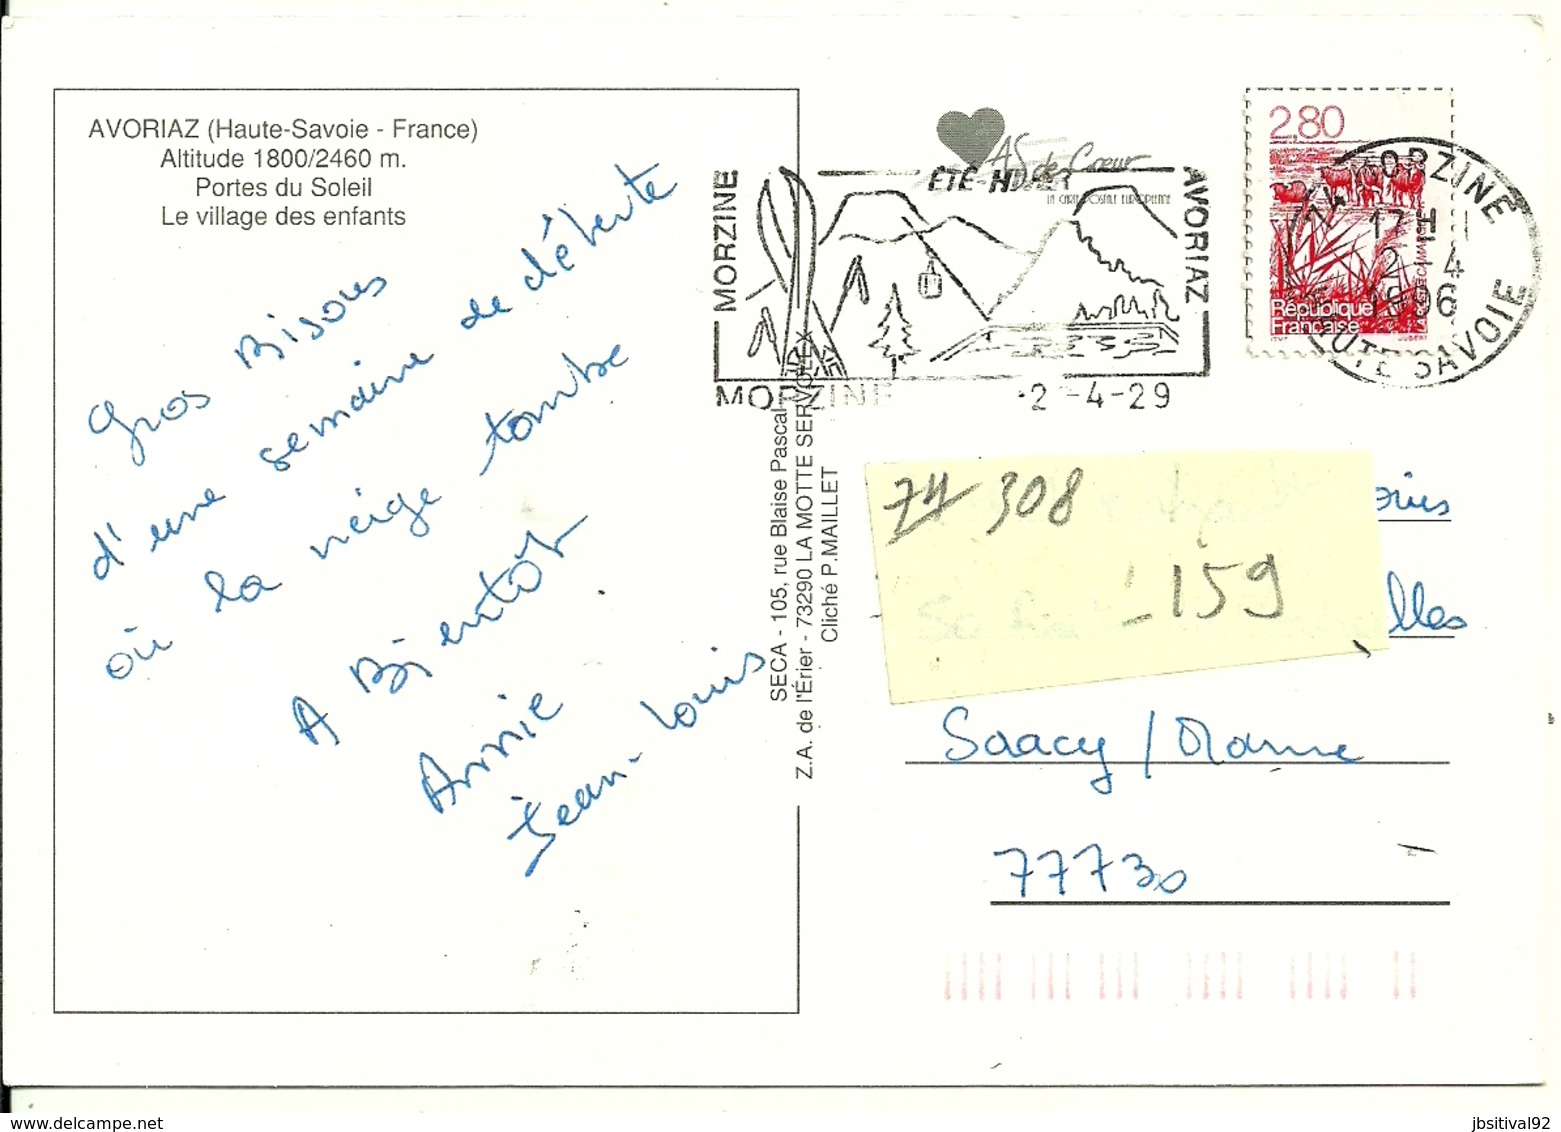 AVORIAZ (Haute-Savoie - France)
Altitude 1800/2460 m.
Portes du Soleil
Le village des enfants
Gros Bisous
d'une semaine de détente
où la neige tombe
A Bientôt
Annie
Jean-Louis
SECA - 105, rue Blaise Pascal
Z.A. de l'Érier - 73290 LA MOTTE SERVOLEX
Cliché P.MAILLET
AS de Coeur
LA CARTE POSTALE EUROPÉENNE
ÉTÉ-HIVER
MORZINE
AVORIAZ
MORZINE
2-4-29
2,80
République
Française
74 MORZINE
17H
2-4
1996
HAUTE SAVOIE
74 308
159
lles
Saacy/Marne
77730
jbsitival92